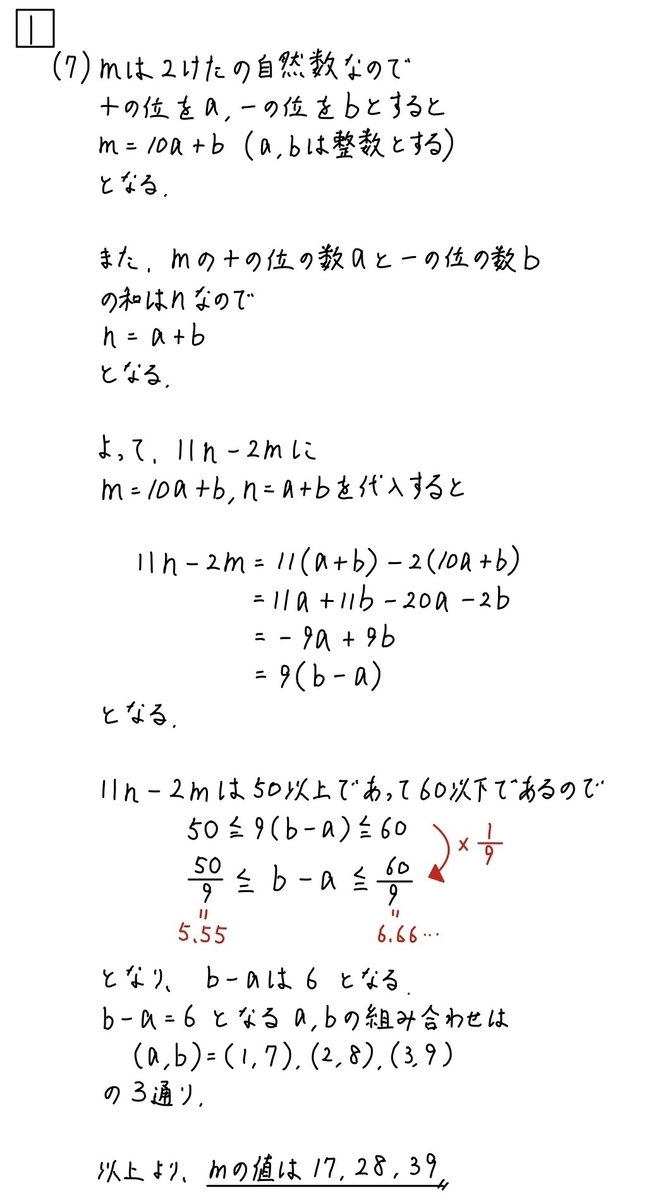 1
(7) mは2けたの自然数なので
十の位をa, 一の位をbとすると
m = 10a + b (a, bは整数とする)
となる.
また, mの十の位の数aと一の位の数b
の和はnなので
n = a + b
となる.
よって, 11n - 2mに
m = 10a + b, n = a + bを代入すると
11n - 2m = 11(a + b) - 2(10a + b)
= 11a + 11b - 20a - 2b
= - 9a + 9b
= 9(b - a)
となる.
11n - 2mは50以上であって60以下であるので
50 ≦ 9(b - a) ≦ 60
× 1/9
50/9 ≦ b - a ≦ 60/9
= 5.55 = 6.66…
となり、 b - aは 6 となる.
b - a = 6 となる a, bの組み合わせは
(a, b) = (1, 7), (2, 8), (3, 9)
の 3通り.
以上より、 mの値は 17, 28, 39